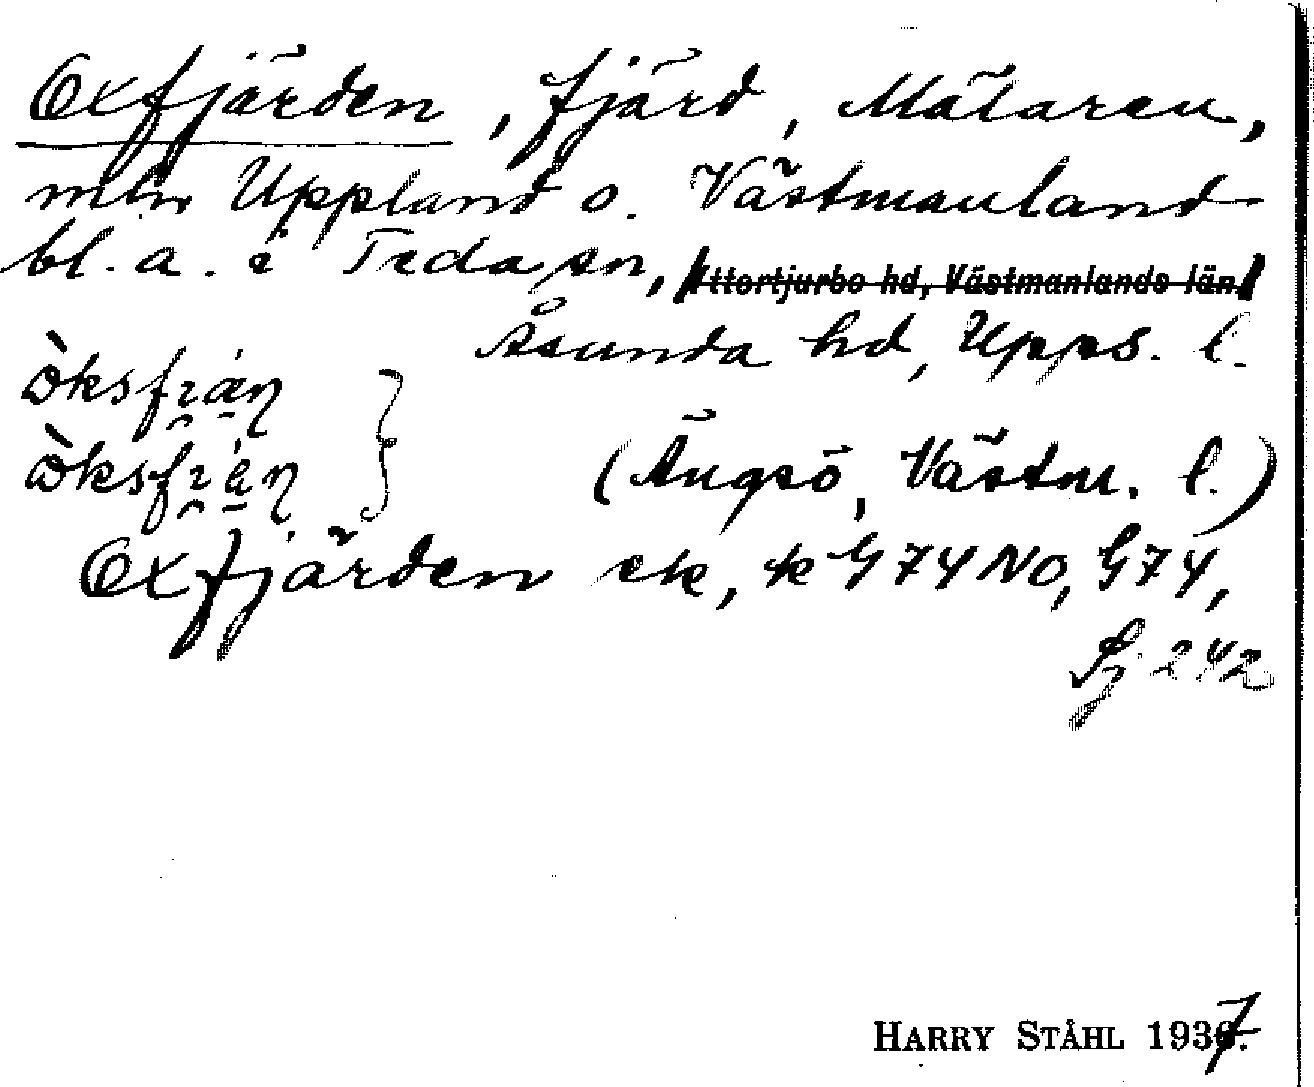 Oxfjärden, fjärd, Mälaren,
mln Uppland o. Västmanland
bl. a. i Teda sn, Yttertjurbo hd, Västmanlands län.
Åsunda hd, Upps. l.
(Ängsö, Västm. l.)
Oxfjärden ek, k G 74 NO, G 74,
Sj 242
HARRY STÅHL 1937